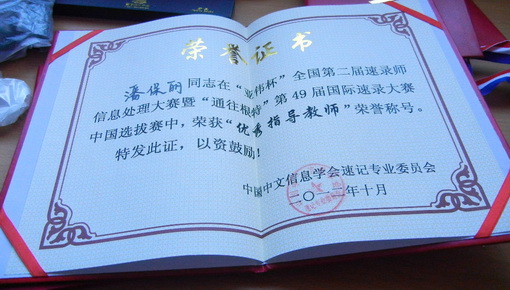 荣誉证书
潘保丽同志在“亚伟杯”全国第二届速录师
信息处理大赛暨“通往根特”第49届国际速录大赛
中国选拔赛中，荣获“优秀指导教师”荣誉称号。
特发此证，以资鼓励！
中国中文信息学会速记专业委员会
二〇一二年十月